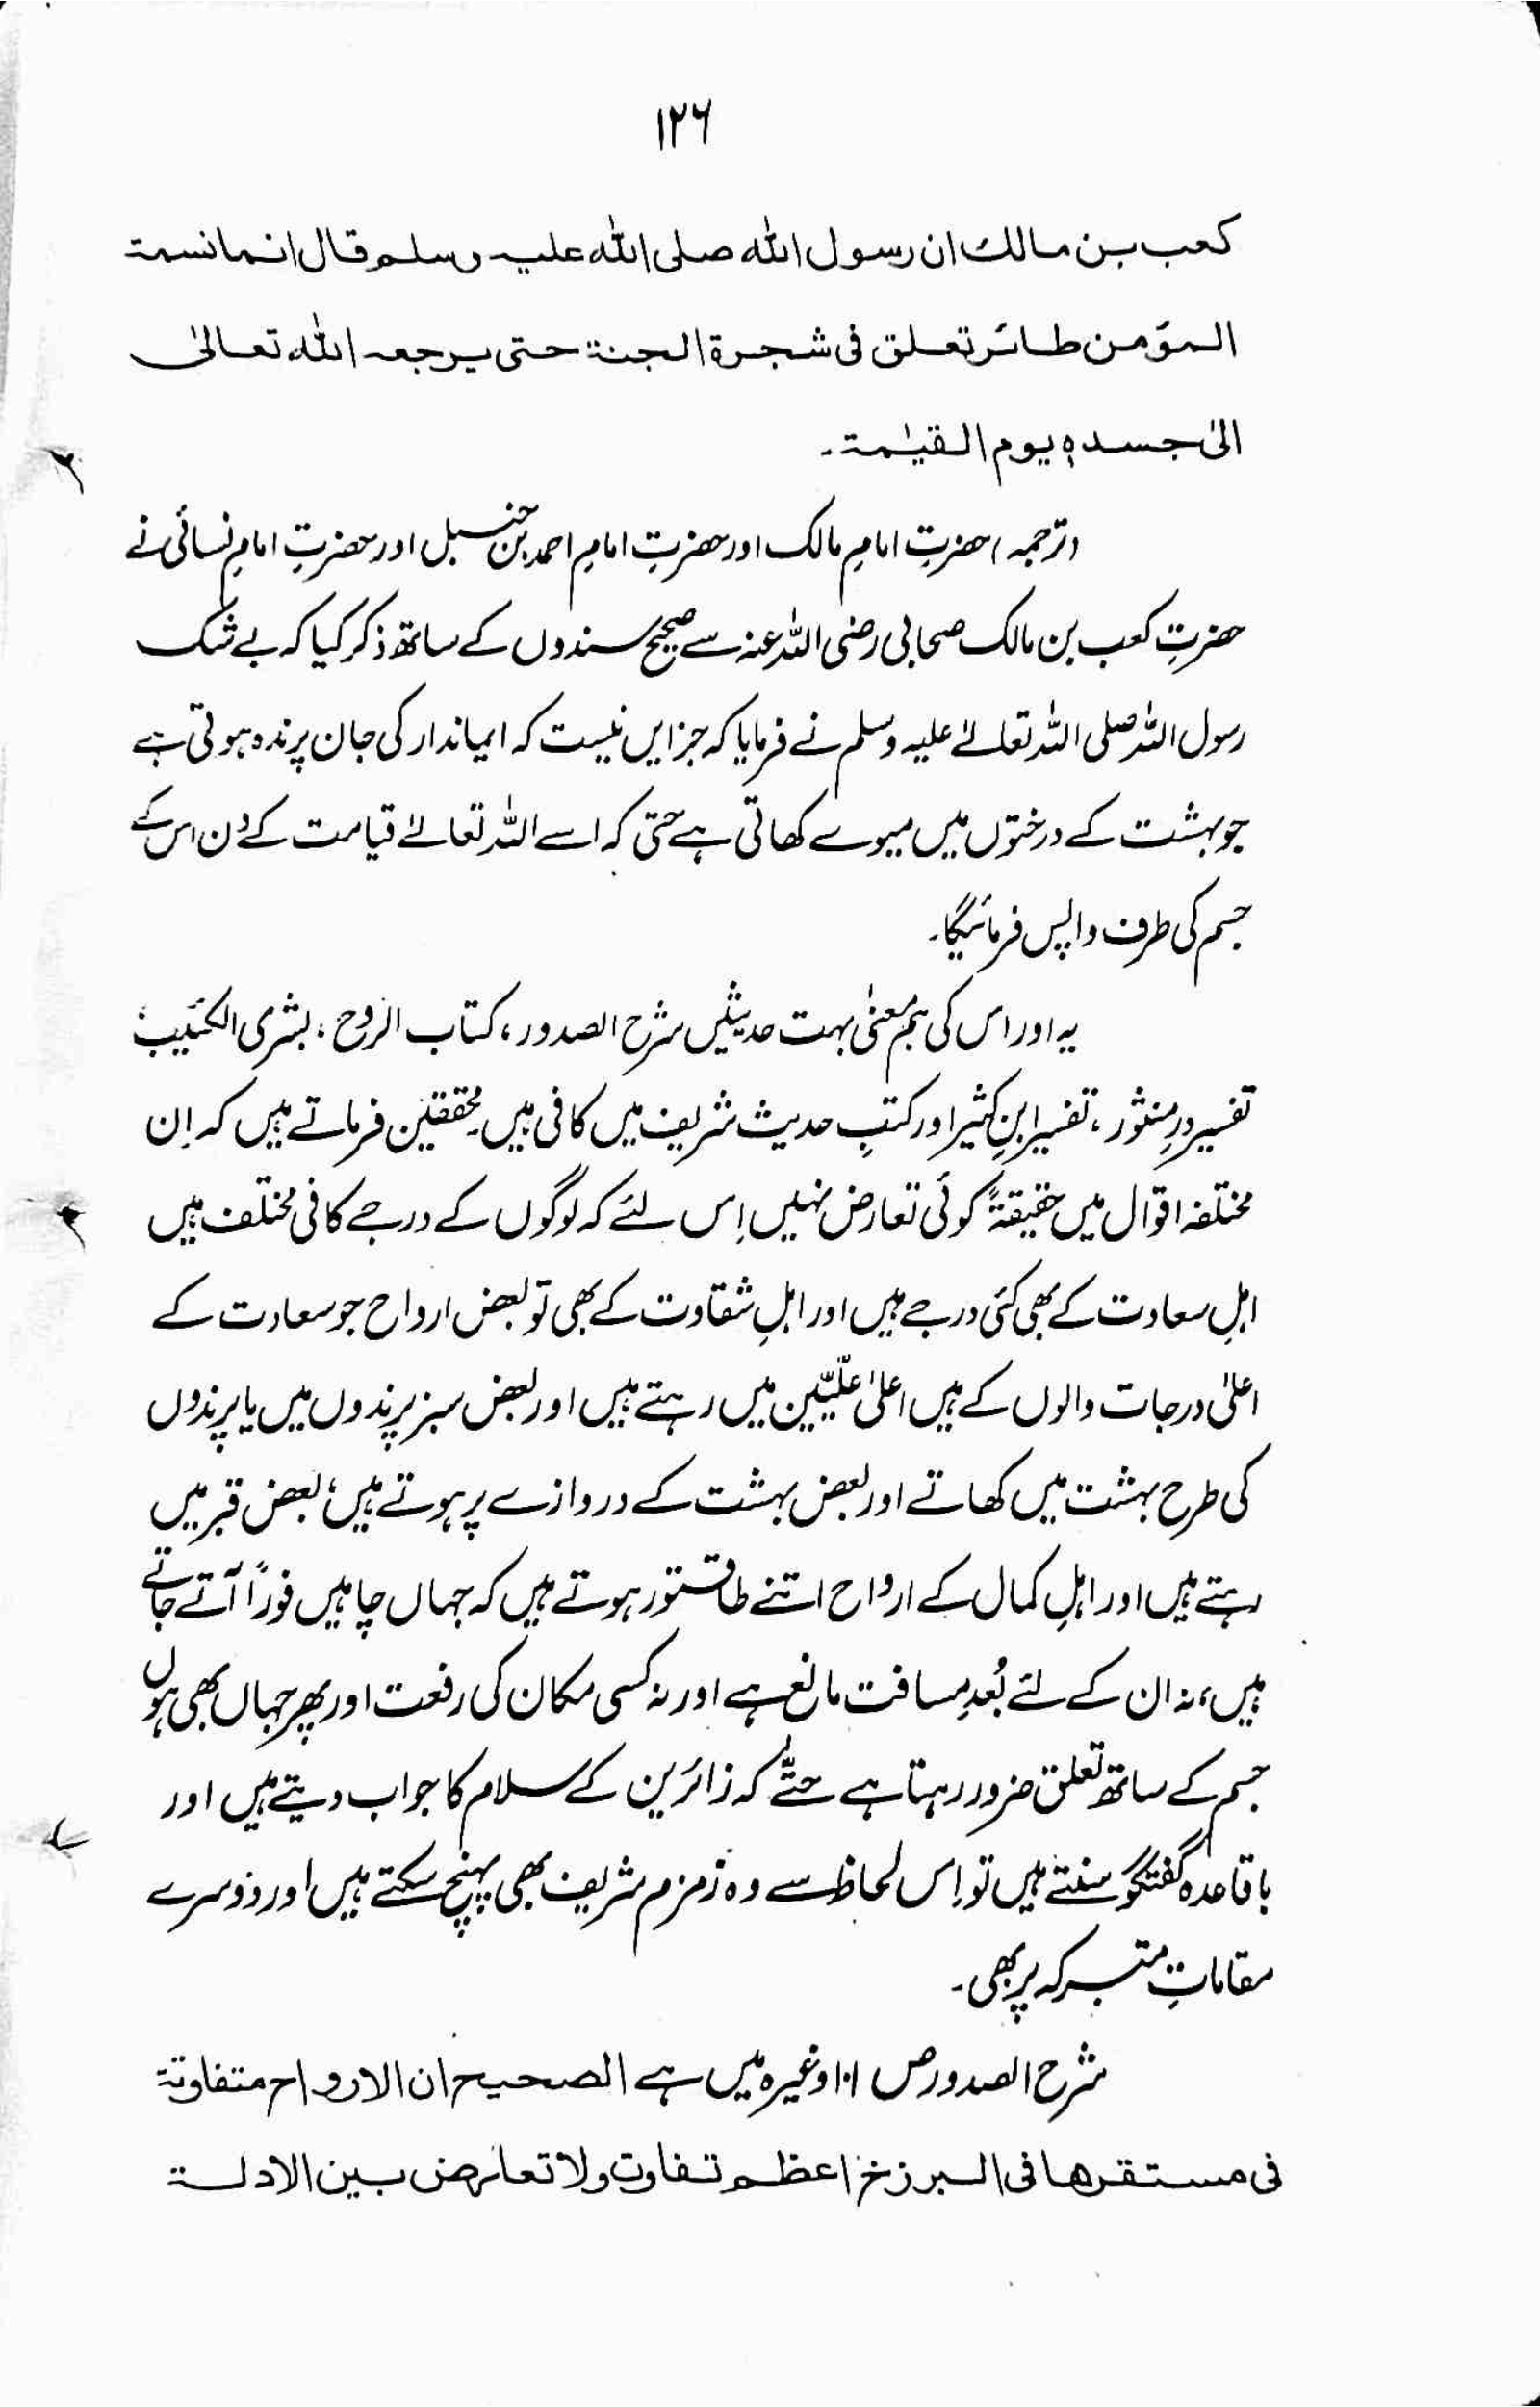 ۱۲۶
کعب بن مالك ان رسول الله صلی الله علیه وسلم قال انما نسمة
المؤمن طائر تعلق فی شجرة الجنة حتی یرجعه الله تعالیٰ
الیٰ جسده یوم القیٰمة۔
(ترجمہ) حضرتِ امامِ مالک اور حضرتِ امامِ احمد بن حنبل اور حضرتِ امامِ نسائی نے
حضرتِ کعب بن مالک صحابی رضی اللہ عنہ سے صحیح سندوں کے ساتھ ذکر کیا کہ بے شک
رسول اللہ صلی اللہ تعالےٰ علیہ وسلم نے فرمایا کہ جز ایں نیست کہ ایماندار کی جان پرندہ ہوتی ہے
جو بہشت کے درختوں میں میوے کھاتی ہے حتی کہ اسے اللہ تعالےٰ قیامت کے دن اس کے
جسم کی طرف واپس فرمائیگا۔
یہ اور اس کی ہم معنیٰ بہت حدیثیں شرح الصدور، کتاب الروح، بشری الکئیب
تفسیر درِ منثور، تفسیر ابنِ کثیر اور کتبِ حدیث شریف میں کافی ہیں۔ محققین فرماتے ہیں کہ اِن
مختلفہ اقوال میں حقیقۃً کوئی تعارض نہیں اِس لئے کہ لوگوں کے درجے کافی مختلف ہیں
اہلِ سعادت کے بھی کئی درجے ہیں اور اہلِ شقاوت کے بھی تو بعض ارواح جو سعادت کے
اعلیٰ درجات والوں کے ہیں اعلیٰ علّیّین میں رہتے ہیں اور بعض سبز پرندوں میں یا پرندوں
کی طرح بہشت میں کھاتے اور بعض بہشت کے دروازے پر ہوتے ہیں، بعض قبر میں
رہتے ہیں اور اہلِ کمال کے ارواح اتنے طاقتور ہوتے ہیں کہ جہاں چاہیں فوراً آتے جاتے
ہیں، نہ ان کے لئے بُعدِ مسافت مانع ہے اور نہ کسی مکان کی رفعت اور پھر جہاں بھی ہوں
جسم کے ساتھ تعلق ضرور رہتا ہے حتّٰے کہ زائرین کے سلام کا جواب دیتے ہیں اور
باقاعدہ گفتگو سنتے ہیں تو اِس لحاظ سے وہ زمزم شریف بھی پہنچ سکتے ہیں اور دوسرے
مقاماتِ متبرکہ پر بھی۔
شرح الصدور ص ۱۰۱ وغیرہ میں ہے الصحیح ان الارواح متفاوتة
فی مستقرها فی البرزخ اعظم تفاوت ولا تعارض بین الادلة